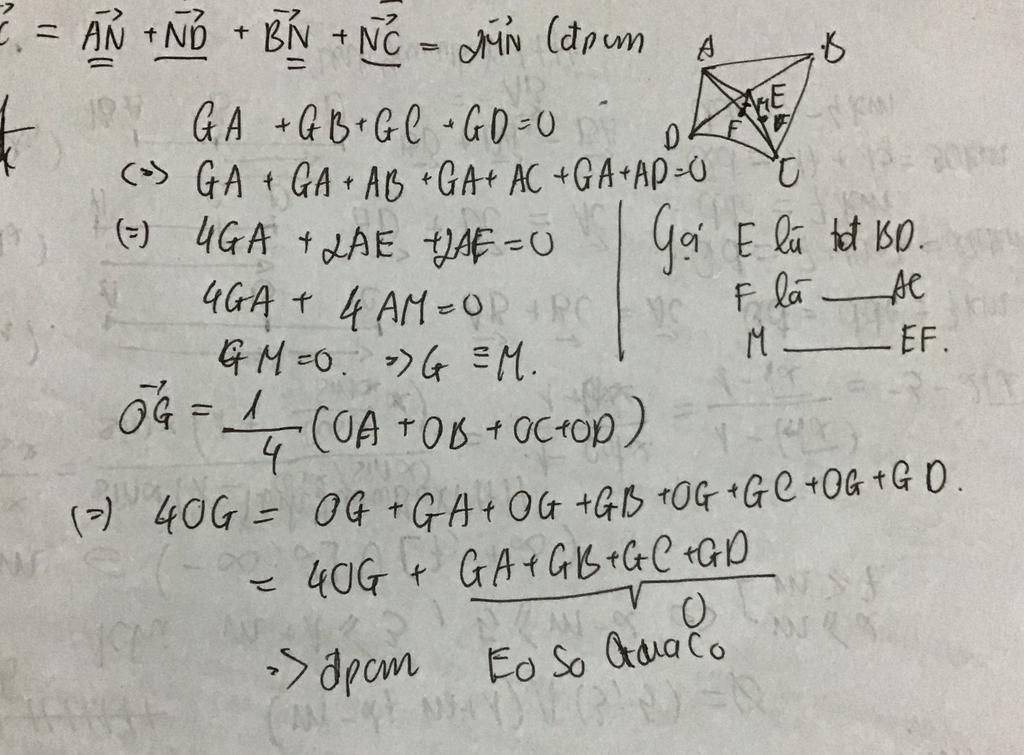 C. = AN + ND + BN + NC = 2MN (đpcm
A B E M F D C
GA + GB + GC + GD = 0
(=> GA + GA + AB + GA + AC + GA + AD = 0
(=) 4GA + 2AE + 2AF = 0
4GA + 4AM = 0
GM = 0. => G ≡ M.
Gọi E là tđt BD.
F là —— AC
M —— EF.
OG = 1/4 (OA + OB + OC + OD)
(=) 4OG = OG + GA + OG + GB + OG + GC + OG + GD.
= 4OG + GA + GB + GC + GD
0
=> đpcm